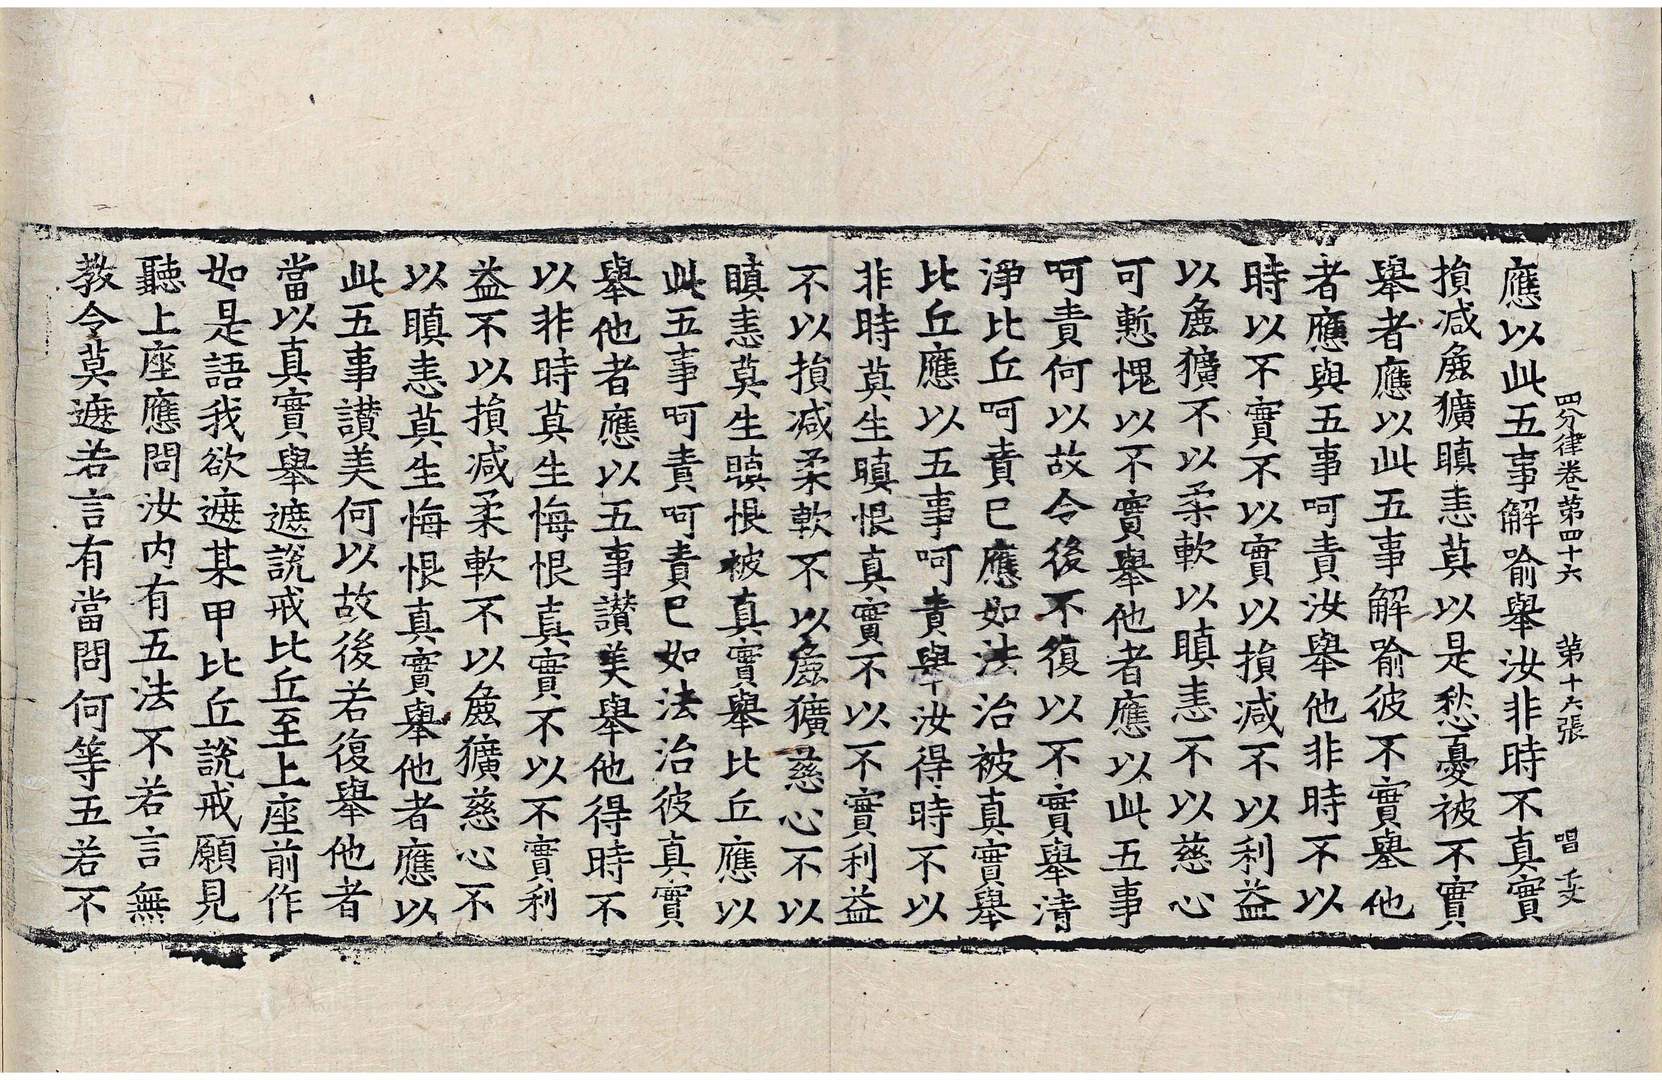 四分律卷第四十六 第十六張 唱
應以此五事解喻舉汝非時不真實
損减麁獷瞋恚莫以是愁憂被不實
舉者應以此五事解喻彼不實舉他
者應與五事呵責汝舉他非時不以
時以不實不以實以損减不以利益
以麁獷不以柔軟以瞋恚不以慈心
可慙愧以不實舉他者應以此五事
呵責何以故令後不復以不實舉清
淨比丘呵責已應如法治被真實舉
比丘應以五事呵責舉汝得時不以
非時莫生瞋恨真實不以不實利益
不以損减柔軟不以麁獷慈心不以
瞋恚莫生瞋恨被真實舉比丘應以
此五事呵責呵責已如法治彼真實
舉他者應以五事讃美舉他得時不
以非時莫生悔恨真實不以不實利
益不以損减柔軟不以麁獷慈心不
以瞋恚莫生悔恨真實舉他者應以
此五事讃美何以故後若復舉他者
當以真實舉遮説戒比丘至上座前作
如是語我欲遮某甲比丘説戒願見
聽上座應問汝内有五法不若言無
教令莫遮若言有當問何等五若不